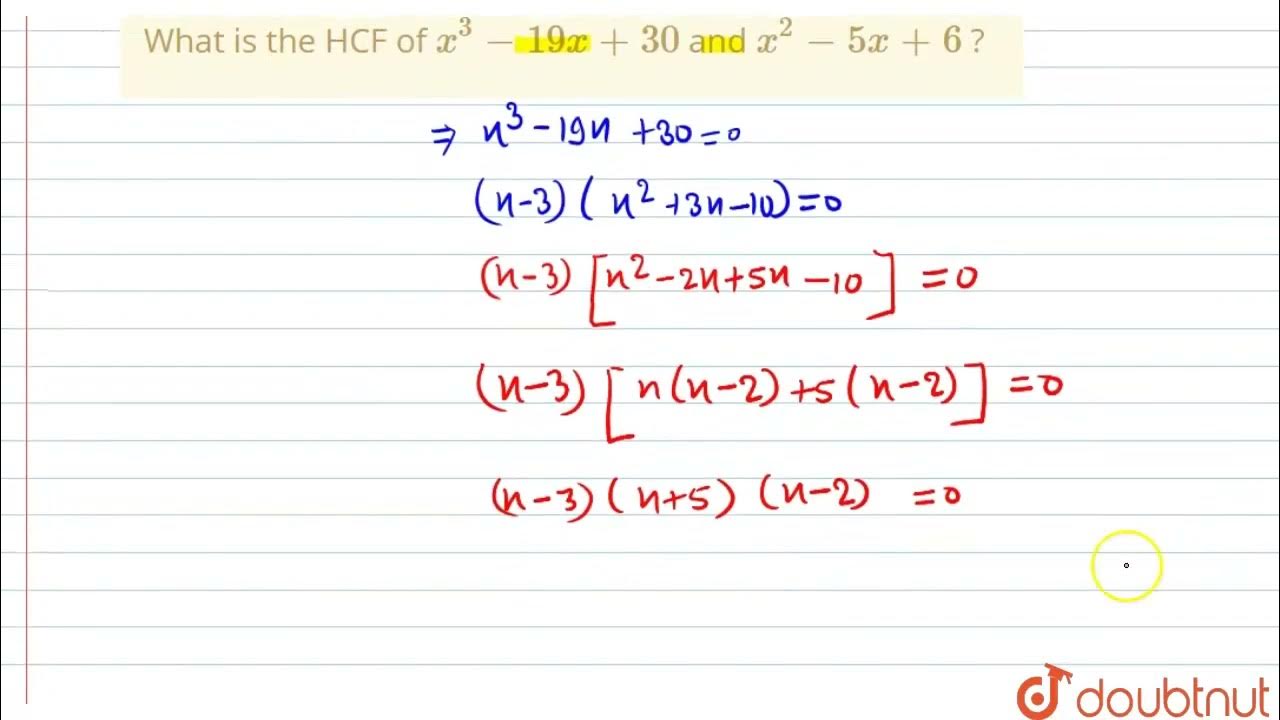 What is the HCF of x³ − 19x + 30 and x² − 5x + 6 ?
⇒ x³ − 19x + 30 = 0
(x−3) ( x² + 3x − 10) = 0
(x−3) [x² − 2x + 5x − 10] = 0
(x−3) [x(x−2) + 5(x−2)] = 0
(x−3) (x+5) (x−2) = 0
doubtnut